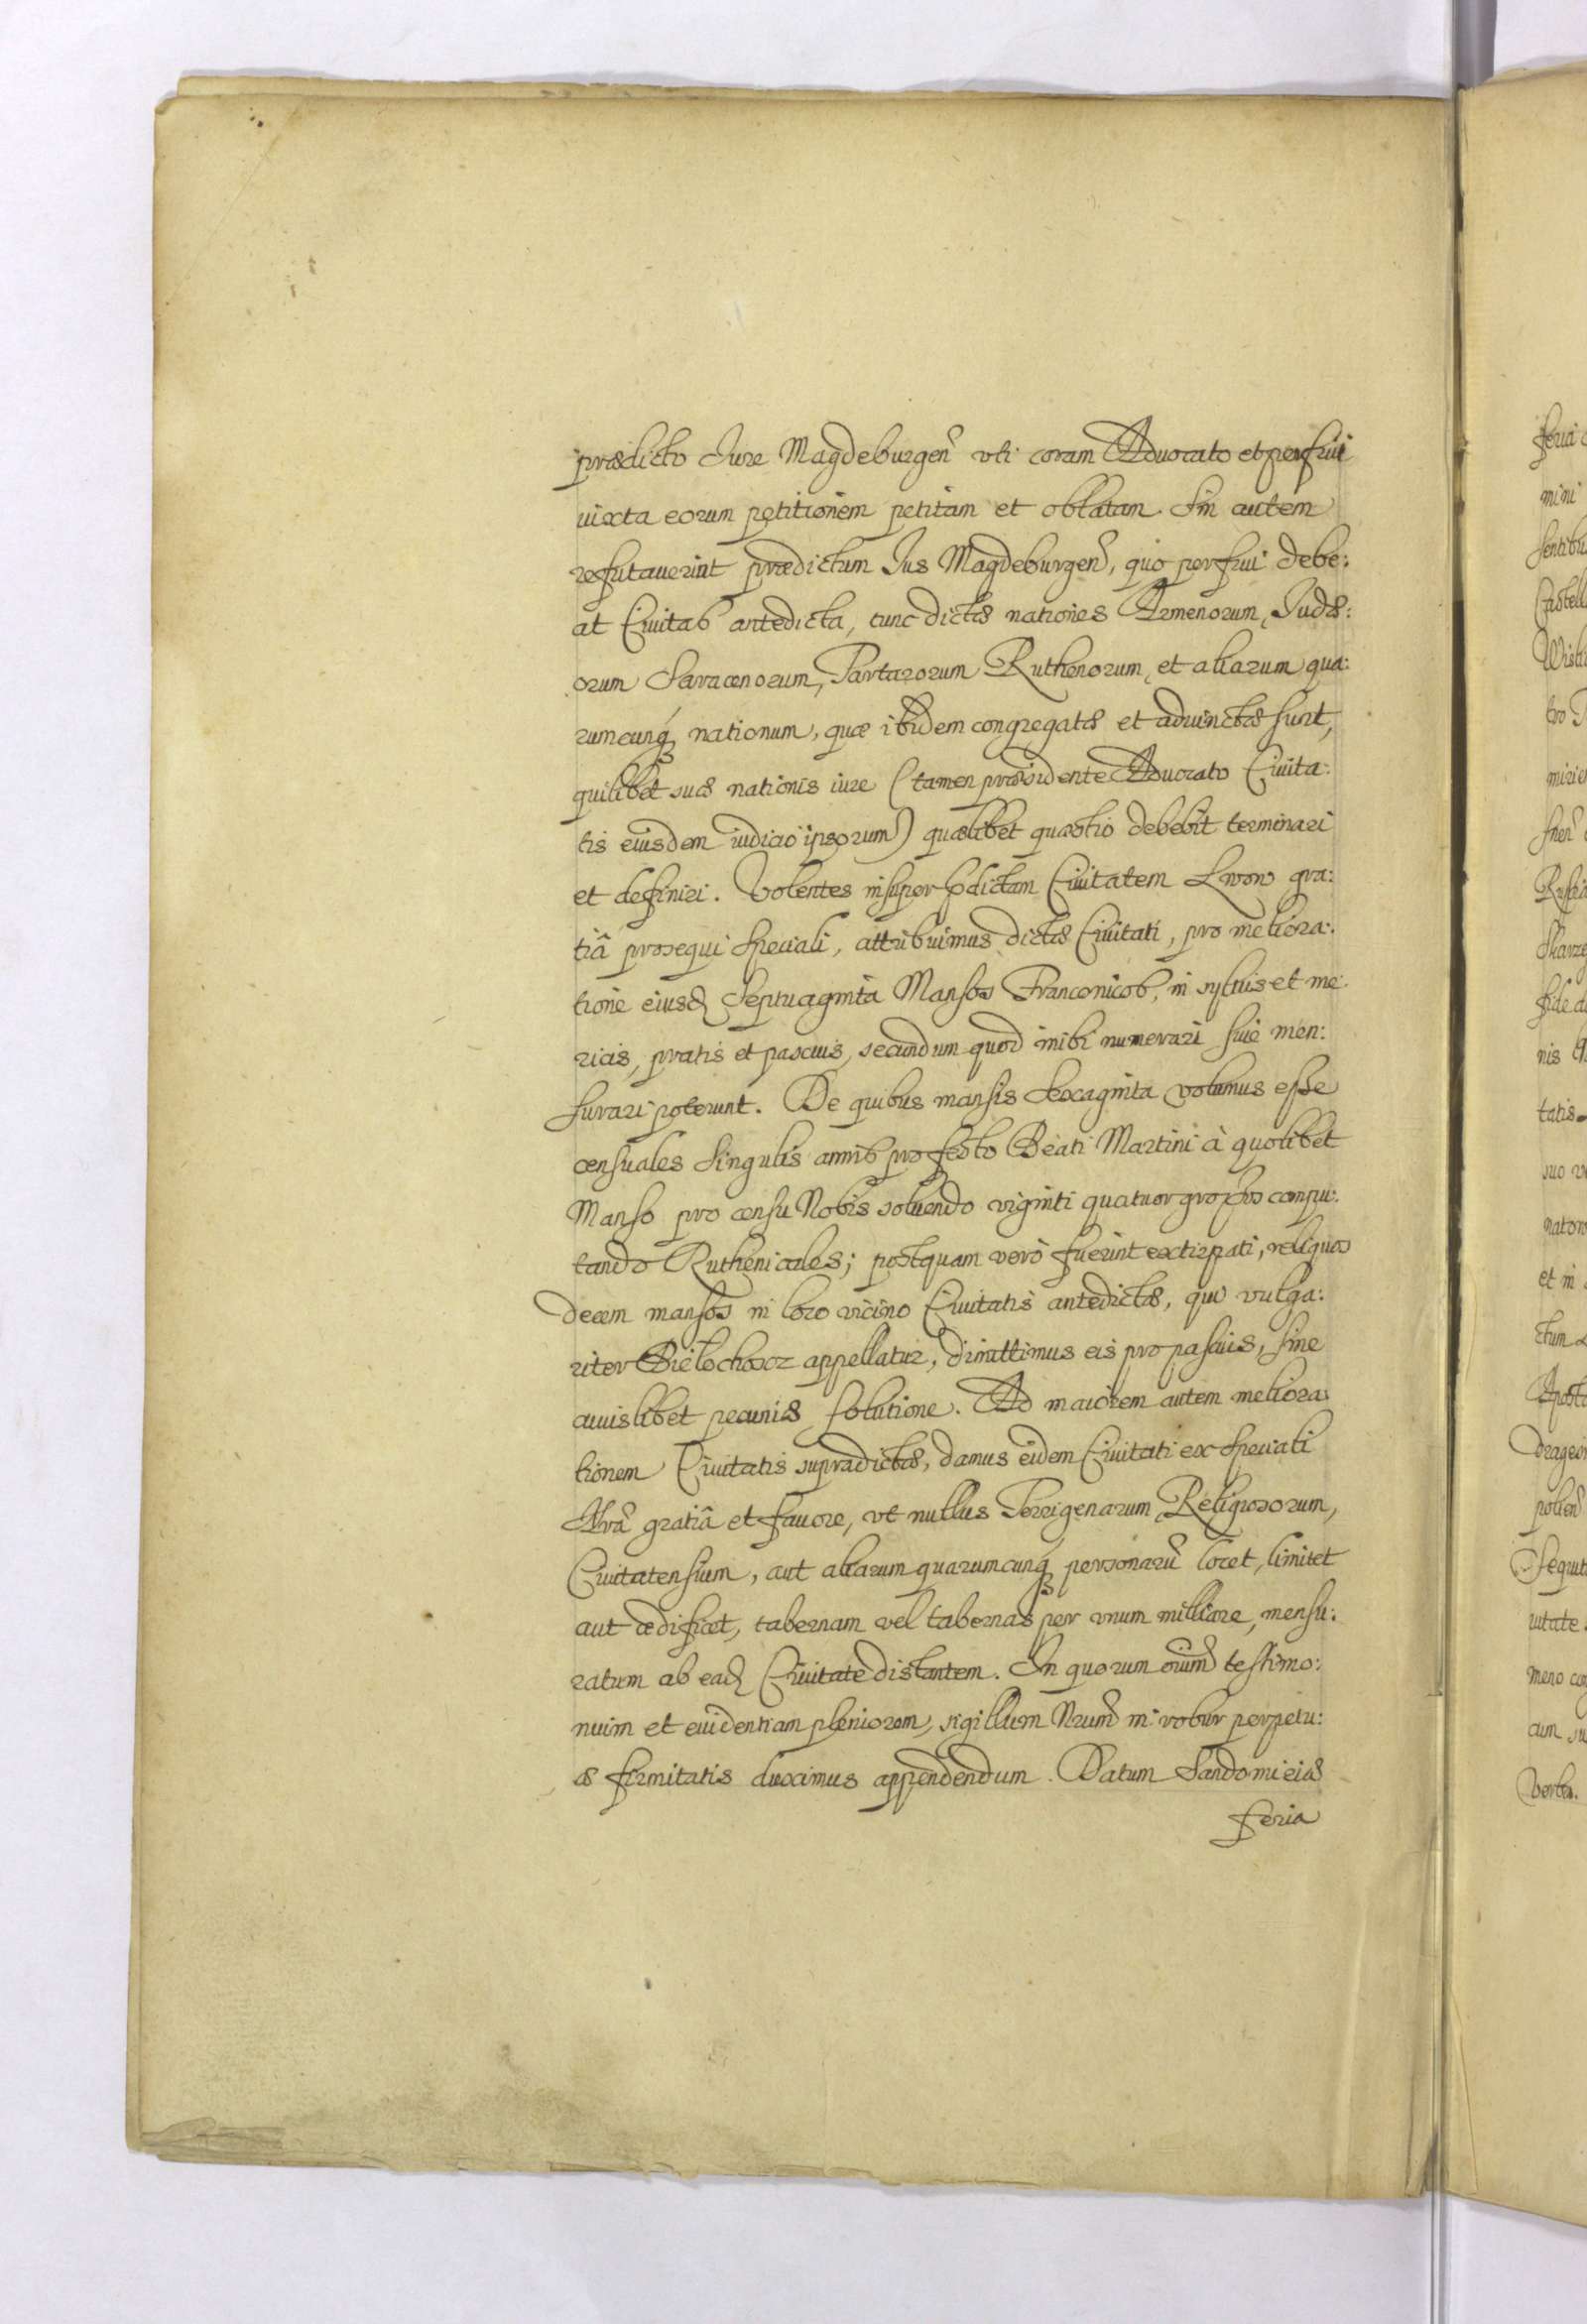 prædicto Jure Magdeburgeñ vti coram Aduocato et perfrui
iuxta eorum petitionem petitam et oblatam. Sin autem
refutauerint prædictum Jus Magdeburgeñ, quo perfrui debe:
at Ciuitas antedicta, tunc dictæ nationes Armenorum, Judæ:
orum Saracenorum, Tartarorum Ruthenorum, et aliarum qua:
rumcunq₃ nationum, quæ ibidem congregatæ et aduinctæ sunt,
quilibet suæ nationis iure (tamen præsidente Aduocato Ciuita:
tis eiusdem iudicio ipsorum) quælibet quæstio debebit terminari
et definiri. Volentes insuper p̃dictam Ciuitatem Lwow gra:
tiâ prosequi speciali, attribuimus dictæ Ciuitati, pro meliora:
tione eiusd̃ Septuaginta Mansos Franconicos, in syluis et me:
ricis, pratis et pascuis, secundum quod inibi numerari siue men:
surari poterunt. De quibus mansis Sexaginta volumus esse
censuales singulis annis pro festo Beati Martini à quolibet
Manso pro censu Nobis soluendo viginti quatuor grossos compu:
tando Ruthenicales; postquam verò fuerint extirpati, reliquos
decem mansos in loco vicino Ciuitatis antedictæ, qui vulga:
riter Bielochoscz appellatur, dimittimus eis pro pascuis, sine
cuiuslibet pecuniæ solutione. Ad maiorem autem meliora:
tionem Ciuitatis supradictæ, damus eidem Ciuitati ex speciali
Nrã gratiâ et fauore, vt nullus Terrigenarum, Religiosorum,
Ciuitatensium, aut aliarum quarumcunq₃ personarũ locet, limitet
aut ædificet, tabernam vel tabernas per vnum milliare, mensu:
ratum ab ead̃ Ciuitate distantem. In quorum oĩum testimo:
nium et euidentiam pleniorem, sigillum Nrum̃ in robur perpetu:
æ firmitatis duximus appendendum. Datum Sandomiriæ
feria